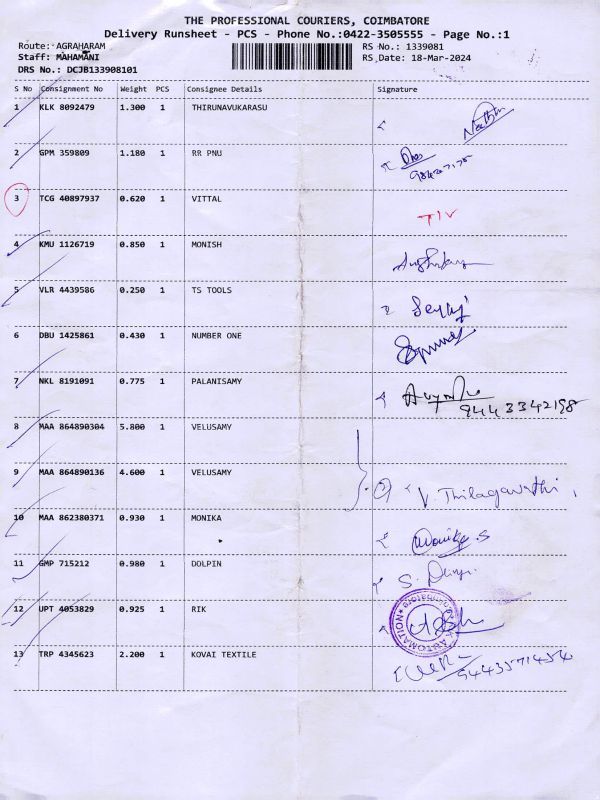 THE PROFESSIONAL COURIERS, COIMBATORE
Delivery Runsheet - PCS - Phone No.:0422-3505555 - Page No.:1
Route: AGRAHARAM RS No.: 1339081
Staff: MAHAMANI RS Date: 18-Mar-2024
DRS No.: DCJB133908101
S No Consignment No Weight PCS Consignee Details Signature
1 KLK 8092479 1.300 1 THIRUNAVUKARASU
2 GPM 359809 1.180 1 RR PNU
3 TCG 40897937 0.620 1 VITTAL
4 KMU 1126719 0.850 1 MONISH
5 VLR 4439586 0.250 1 TS TOOLS
6 DBU 1425861 0.430 1 NUMBER ONE
7 NKL 8191091 0.775 1 PALANISAMY
9443342198
8 MAA 864890304 5.800 1 VELUSAMY
9 MAA 864890136 4.600 1 VELUSAMY
② V. Thilagavathi
10 MAA 862380371 0.930 1 MONIKA
Monika.S
11 GMP 715212 0.980 1 DOLPIN
12 UPT 4053829 0.925 1 RIK
AUTOMATION
13 TRP 4345623 2.200 1 KOVAI TEXTILE
9443571454